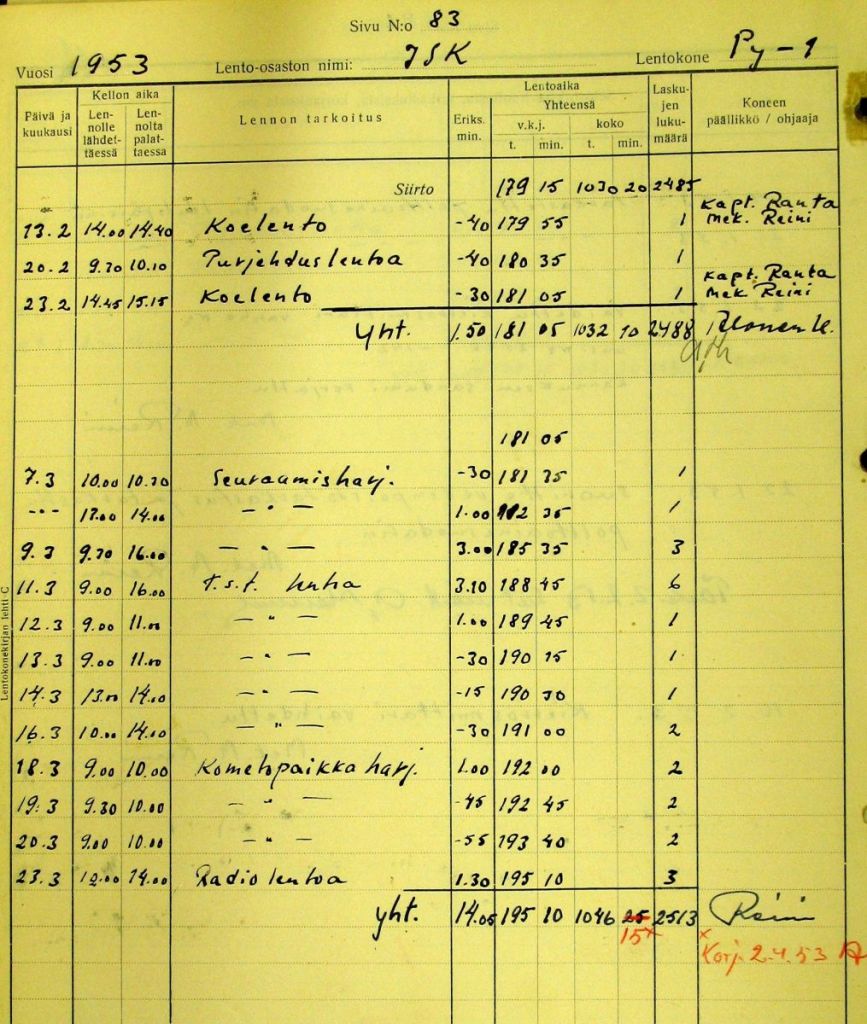 Sivu N:o 83
Vuosi 1953 Lento-osaston nimi: ISK Lentokone Py-1
Päivä ja kuukausi Kellon aika Lennolle lähdettäessä Lennolta palattaessa Lennon tarkoitus Eriks. min. Lentoaika Yhteensä v.k.j. t. min. koko t. min. Laskujen lukumäärä Koneen päällikkö / ohjaaja
Siirto 179 15 1030 20 2485
13.2 14.00 14.40 Koelento -40 179 55 1 Kapt. Ranta Mek. Reini
20.2 9.30 10.10 Purjehduslentoa -40 180 35 1
23.2 14.45 15.15 Koelento -30 181 05 1 Kapt. Ranta Mek Reini
Yht. 1.50 181 05 1032 10 2488
181 05
7.3 10.00 10.30 Seuraamisharj. -30 181 35 1
-"- 13.00 14.00 - " - 1.00 182 35 1
9.3 9.30 16.00 - " - 3.00 185 35 3
11.3 9.00 16.00 T.s.t. lentoa 3.10 188 45 6
12.3 9.00 11.00 - " - 1.00 189 45 1
13.3 9.00 11.00 - " - -30 190 15 1
14.3 13.00 14.00 - " - -15 190 30 1
16.3 10.00 14.00 - " - -30 191 00 2
18.3 9.00 10.00 Kometopaikka harj. 1.00 192 00 2
19.3 9.30 10.00 - " - -45 192 45 2
20.3 9.00 10.00 - " - -55 193 40 2
23.3 12.00 14.00 Radiolentoa 1.30 195 10 3
yht. 14.05 195 10 1046 25 2513 Reini
15x
x Korj. 2.4.53
Lentokonekirjan lehti C